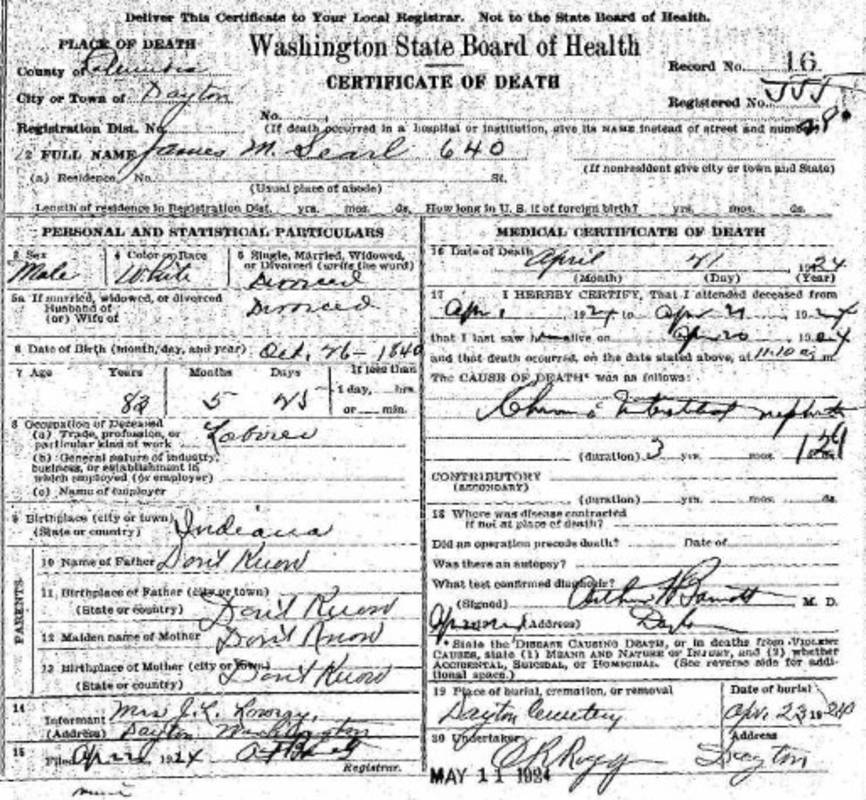 Deliver This Certificate to Your Local Registrar. Not to the State Board of Health.
PLACE OF DEATH
Washington State Board of Health
CERTIFICATE OF DEATH
County of Columbia
Record No. 16
City or Town of Dayton
Registered No.
Registration Dist. No.
No.
(If death occurred in a hospital or institution, give its NAME instead of street and number)
2 FULL NAME James M. Searl 640
(a) Residence. No. St.
(Usual place of abode)
(If nonresident give city or town and State)
Length of residence in Registration Dist. yrs. mos. ds. How long in U. S. if of foreign birth? yrs. mos. ds.
PERSONAL AND STATISTICAL PARTICULARS
3 Sex
Male
4 Color or Race
White
5 Single, Married, Widowed,
or Divorced (write the word)
Divorced
5a If married, widowed, or divorced
Husband of
(or) Wife of
Divorced
6 Date of Birth (month, day, and year) Oct. 26 - 1840
7 Age
Years
83
Months
5
Days
25
If less than
1 day, hrs.
or min.
8 Occupation of Deceased
(a) Trade, profession, or
particular kind of work Laborer
(b) General nature of industry,
business, or establishment in
which employed (or employer)
(c) Name of employer
9 Birthplace (city or town)
(State or country) Indiana
PARENTS
10 Name of Father Don't Know
11 Birthplace of Father (city or town)
(State or country) Don't Know
12 Maiden name of Mother Don't Know
13 Birthplace of Mother (city or town)
(State or country) Don't Know
14
Informant Mrs J. L.
(Address) Dayton Washington
15
Filed 1924
Registrar.
MEDICAL CERTIFICATE OF DEATH
16 Date of Death April 21 1924
(Month) (Day) (Year)
17 I HEREBY CERTIFY, That I attended deceased from
Apr 1 1924 to Apr 21 1924
that I last saw him alive on Apr 20 1924
and that death occurred, on the date stated above, at 11:10 a m
The CAUSE OF DEATH* was as follows:
Chronic Interstitial nephritis
(duration) 3 yrs. mos. ds.
CONTRIBUTORY
(SECONDARY)
(duration) yrs. mos. ds.
18 Where was disease contracted
if not at place of death?
Did an operation precede death? Date of
Was there an autopsy?
What test confirmed diagnosis?
(Signed) M. D.
(Address) Dayton
* State the DISEASE CAUSING DEATH, or in deaths from VIOLENT
CAUSES, state (1) MEANS AND NATURE OF INJURY, and (2) whether
ACCIDENTAL, SUICIDAL, or HOMICIDAL. (See reverse side for addi-
tional space.)
19 Place of burial, cremation, or removal
Dayton Cemetery
Date of burial
Apr. 23 1924
20 Undertaker
Address
Dayton
MAY 11 1924